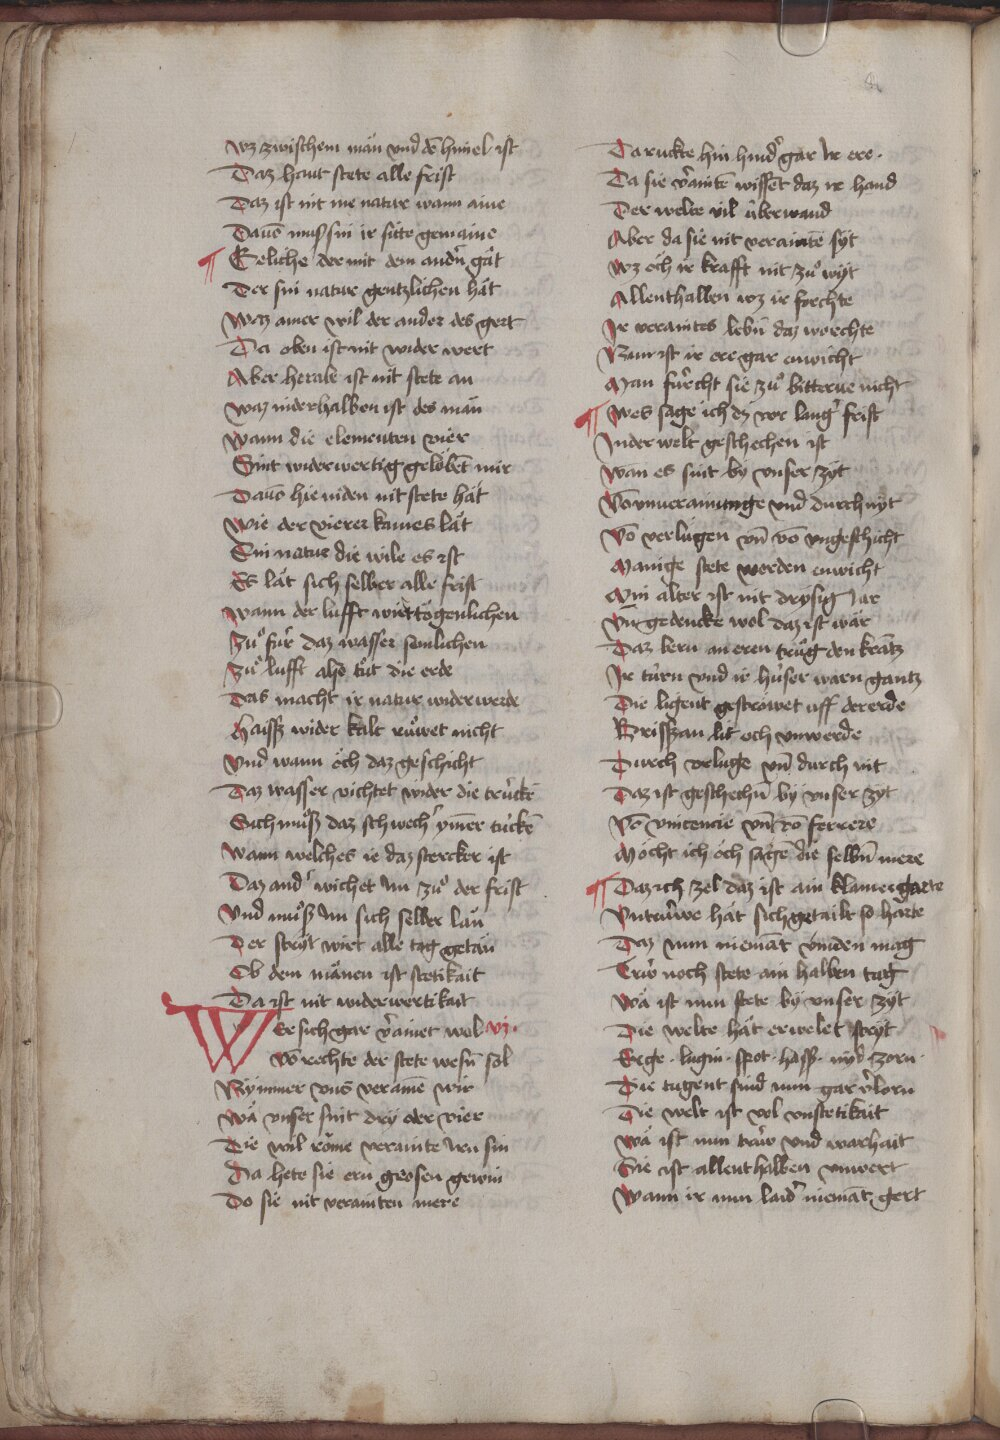 wz zwischem män vnd dē himel ist
Daz haut stete alle frist
Daz ist nit me natur wann aine
Dauō muß sin ir sitte gemaine
¶ Etliche der mit dem andn̄ gāt
Der sin natur gentzlichen hāt
Waz ainer wil der ander des gert
Da oben ist nit wider wert
Aber herabe ist nit stete an
Waz niderhalben ist des män
Wann die elementen vier
Sint widerwertig gelöbēt mir
Dauō hie niden nit stete hāt
Wie der vierer kaines lāt
Sin natur die wile es ist
Es lāt sich selber alle frist
Wann der lufft wirt tögenlichen
Zů für daz wasser semlichen
Zů lufft also tůt die erde
Das macht ir natur widerwerde
Haiß wider kalt růwet nicht
Vnd wann öch daz geschicht
Daz wasser vichtet wider die trückē
Sich můß daz schwech ym̄er tückē
Wann welches ie daz stercker ist
Daz and' wichet Im zů der frist
Vnd můß Im sich selber lān
Der stryt wirt alle tag getān
Ob dem mänen ist stetikait
Da ist nit widerwertikait
WEr sich gar v'ainet wol vj.
Vō rechte der stete wesn̄ sol
Nymmer vns verainē wir
Wā vnser sint dry oder vier
Die wil röme verainte Iren sin
Da hete sie ern grosen gewin
Do sie nit verainten mere
Da ruckte hin hind' gar Ir ere.
Da sie v'aintē wissēt daz ir hand
Der welte vil überwand
Aber da sie nit veraintē syt
Wz öch ir krafft nit zů wyt
Allenthalben wz ir forchte
Ir veraintes lebn̄ daz worchte
Nun ist ir ere gar enwicht
Man fürcht sie zů bitterne nicht
¶ Wes sage ich dz vor lang' frist
In der welt geschechen ist
Wan es sint by vnser zyt
Vō vnuerainunge vnd durch nyt
Vō verlügen vn̄ vō vngeschicht
Manige stete worden enwicht
Min alter ist nit drysig Jar
Vn̄ gedencke wol daz ist wär
Daz bern an eren trůg den krātz
Ir türn vnd ir hüser warn gantz
Die ligent geströwet vff der erde
Brissan lit och vnwerde
Durch vrluge vn̄ durch nit
Daz ist geschechn̄ by vnser zyt
Vō vincencie vn̄ vō ferrere
Möcht ich öch sagē die selbn̄ mere
¶ Daz ich zel daz ist ain klainer garte
Vntrüwe hāt sich getailt so harte
Daz nun niemāt vinden mag
Trüw noch stete ain halben tag
Wā ist nun stete by vnser zyt
Die welte hāt erwelet stryt
Erge. lugin. spot. haß. nyd. zorn.
Die tugent sind nun gar v'lorn
Die welt ist vol vnstetikait
Wā ist nun trüw vnd warhait
Sie ist allenthalben vnwert
Wann ir nun laid' niemāt gert